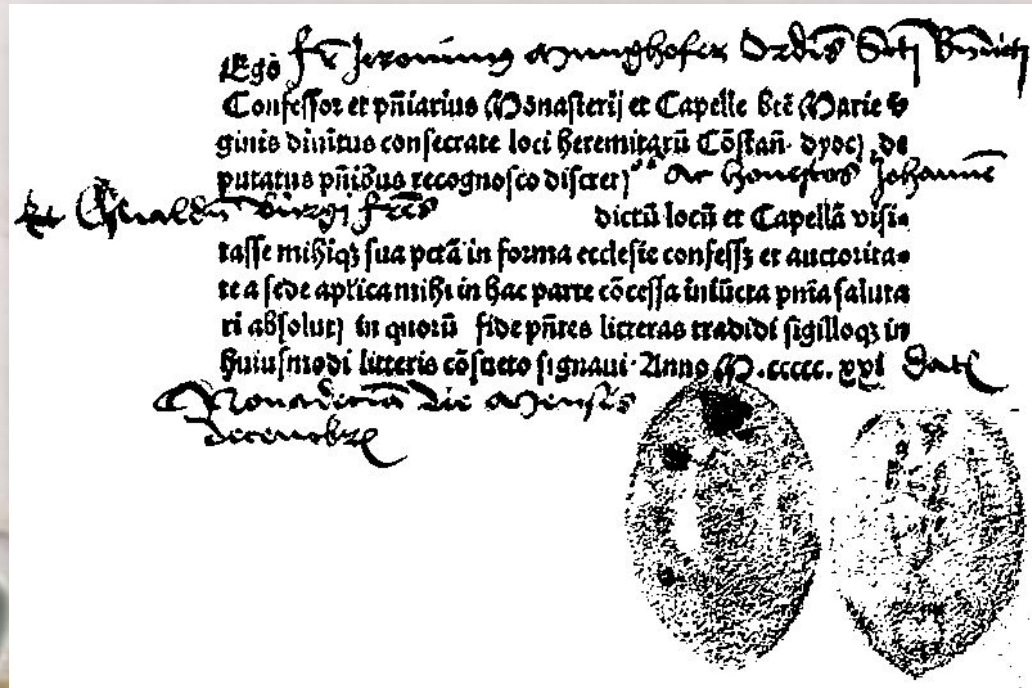 Ego fr̄ Jeronimus Munghofer Ordīs Sctj Bn̄dicti
Confessor et pn̄iarius Monasterij et Capelle btē Marie v
ginis diuitus consecrate loci heremitarū Cōstan̄. dyoc) , de
putatus pn̄ibus recognosco discret) ac honestos Johannē
et Oswaldū fr̄es dictū locū et Capellā visi-
tasse mihiqꝫ sua pctā in forma ecclesie confessꝫ et auctorita-
te a sede aplica mihi in hac parte cōcessa iniūcta pnīa saluta
ri absolut) in quorū fide pn̄tes litteras tradidi sigilloqꝫ in
huiusmodi litteris cōsueto signaui. Anno M.ccccc.xxi Dat
Nonadecima die Mensis
decembr